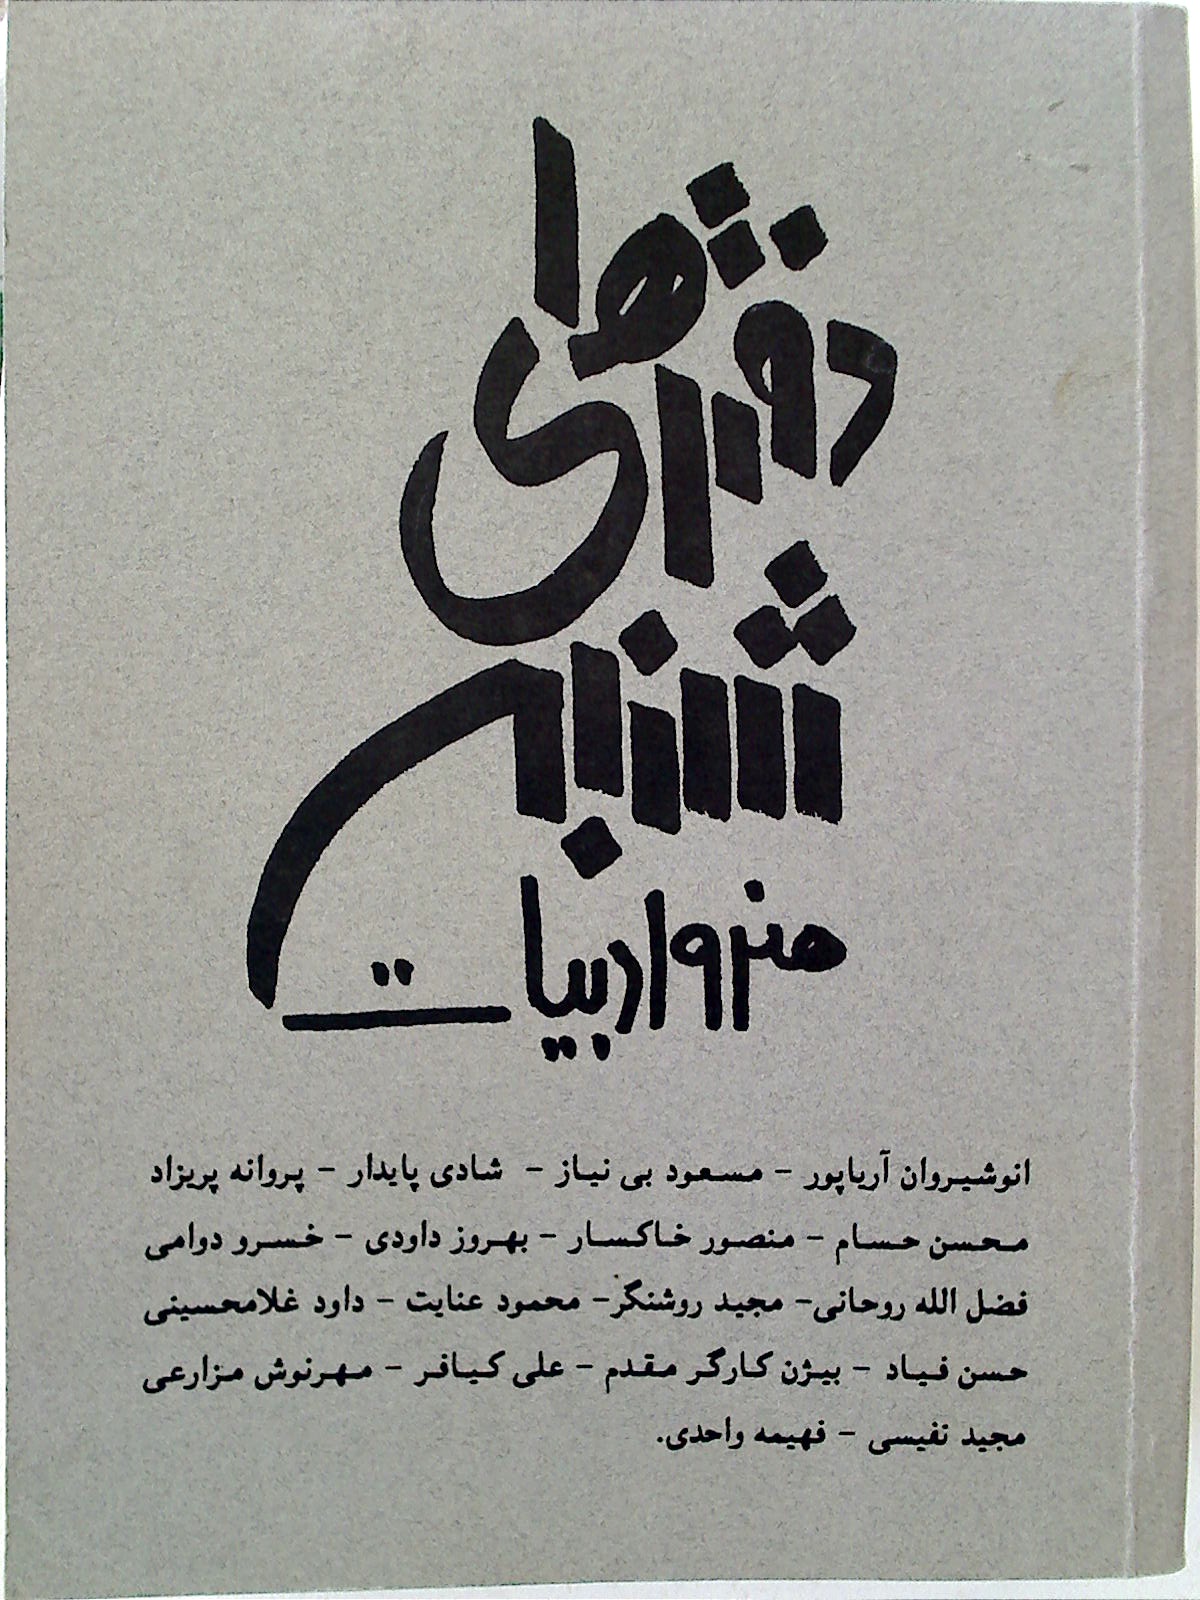 دفترهای
شنبه
هنر و ادبیات
انوشیروان آریاپور - مسعود بی نیاز - شادی پایدار - پروانه پریزاد
محسن حسام - منصور خاکسار - بهروز داودی - خسرو دوامی
فضل الله روحانی- مجید روشنگر- محمود عنایت - داود غلامحسینی
حسن فیاد - بیژن کارگر مقدم - علی کیافر - مهرنوش مزارعی
مجید نفیسی - فهیمه واحدی.